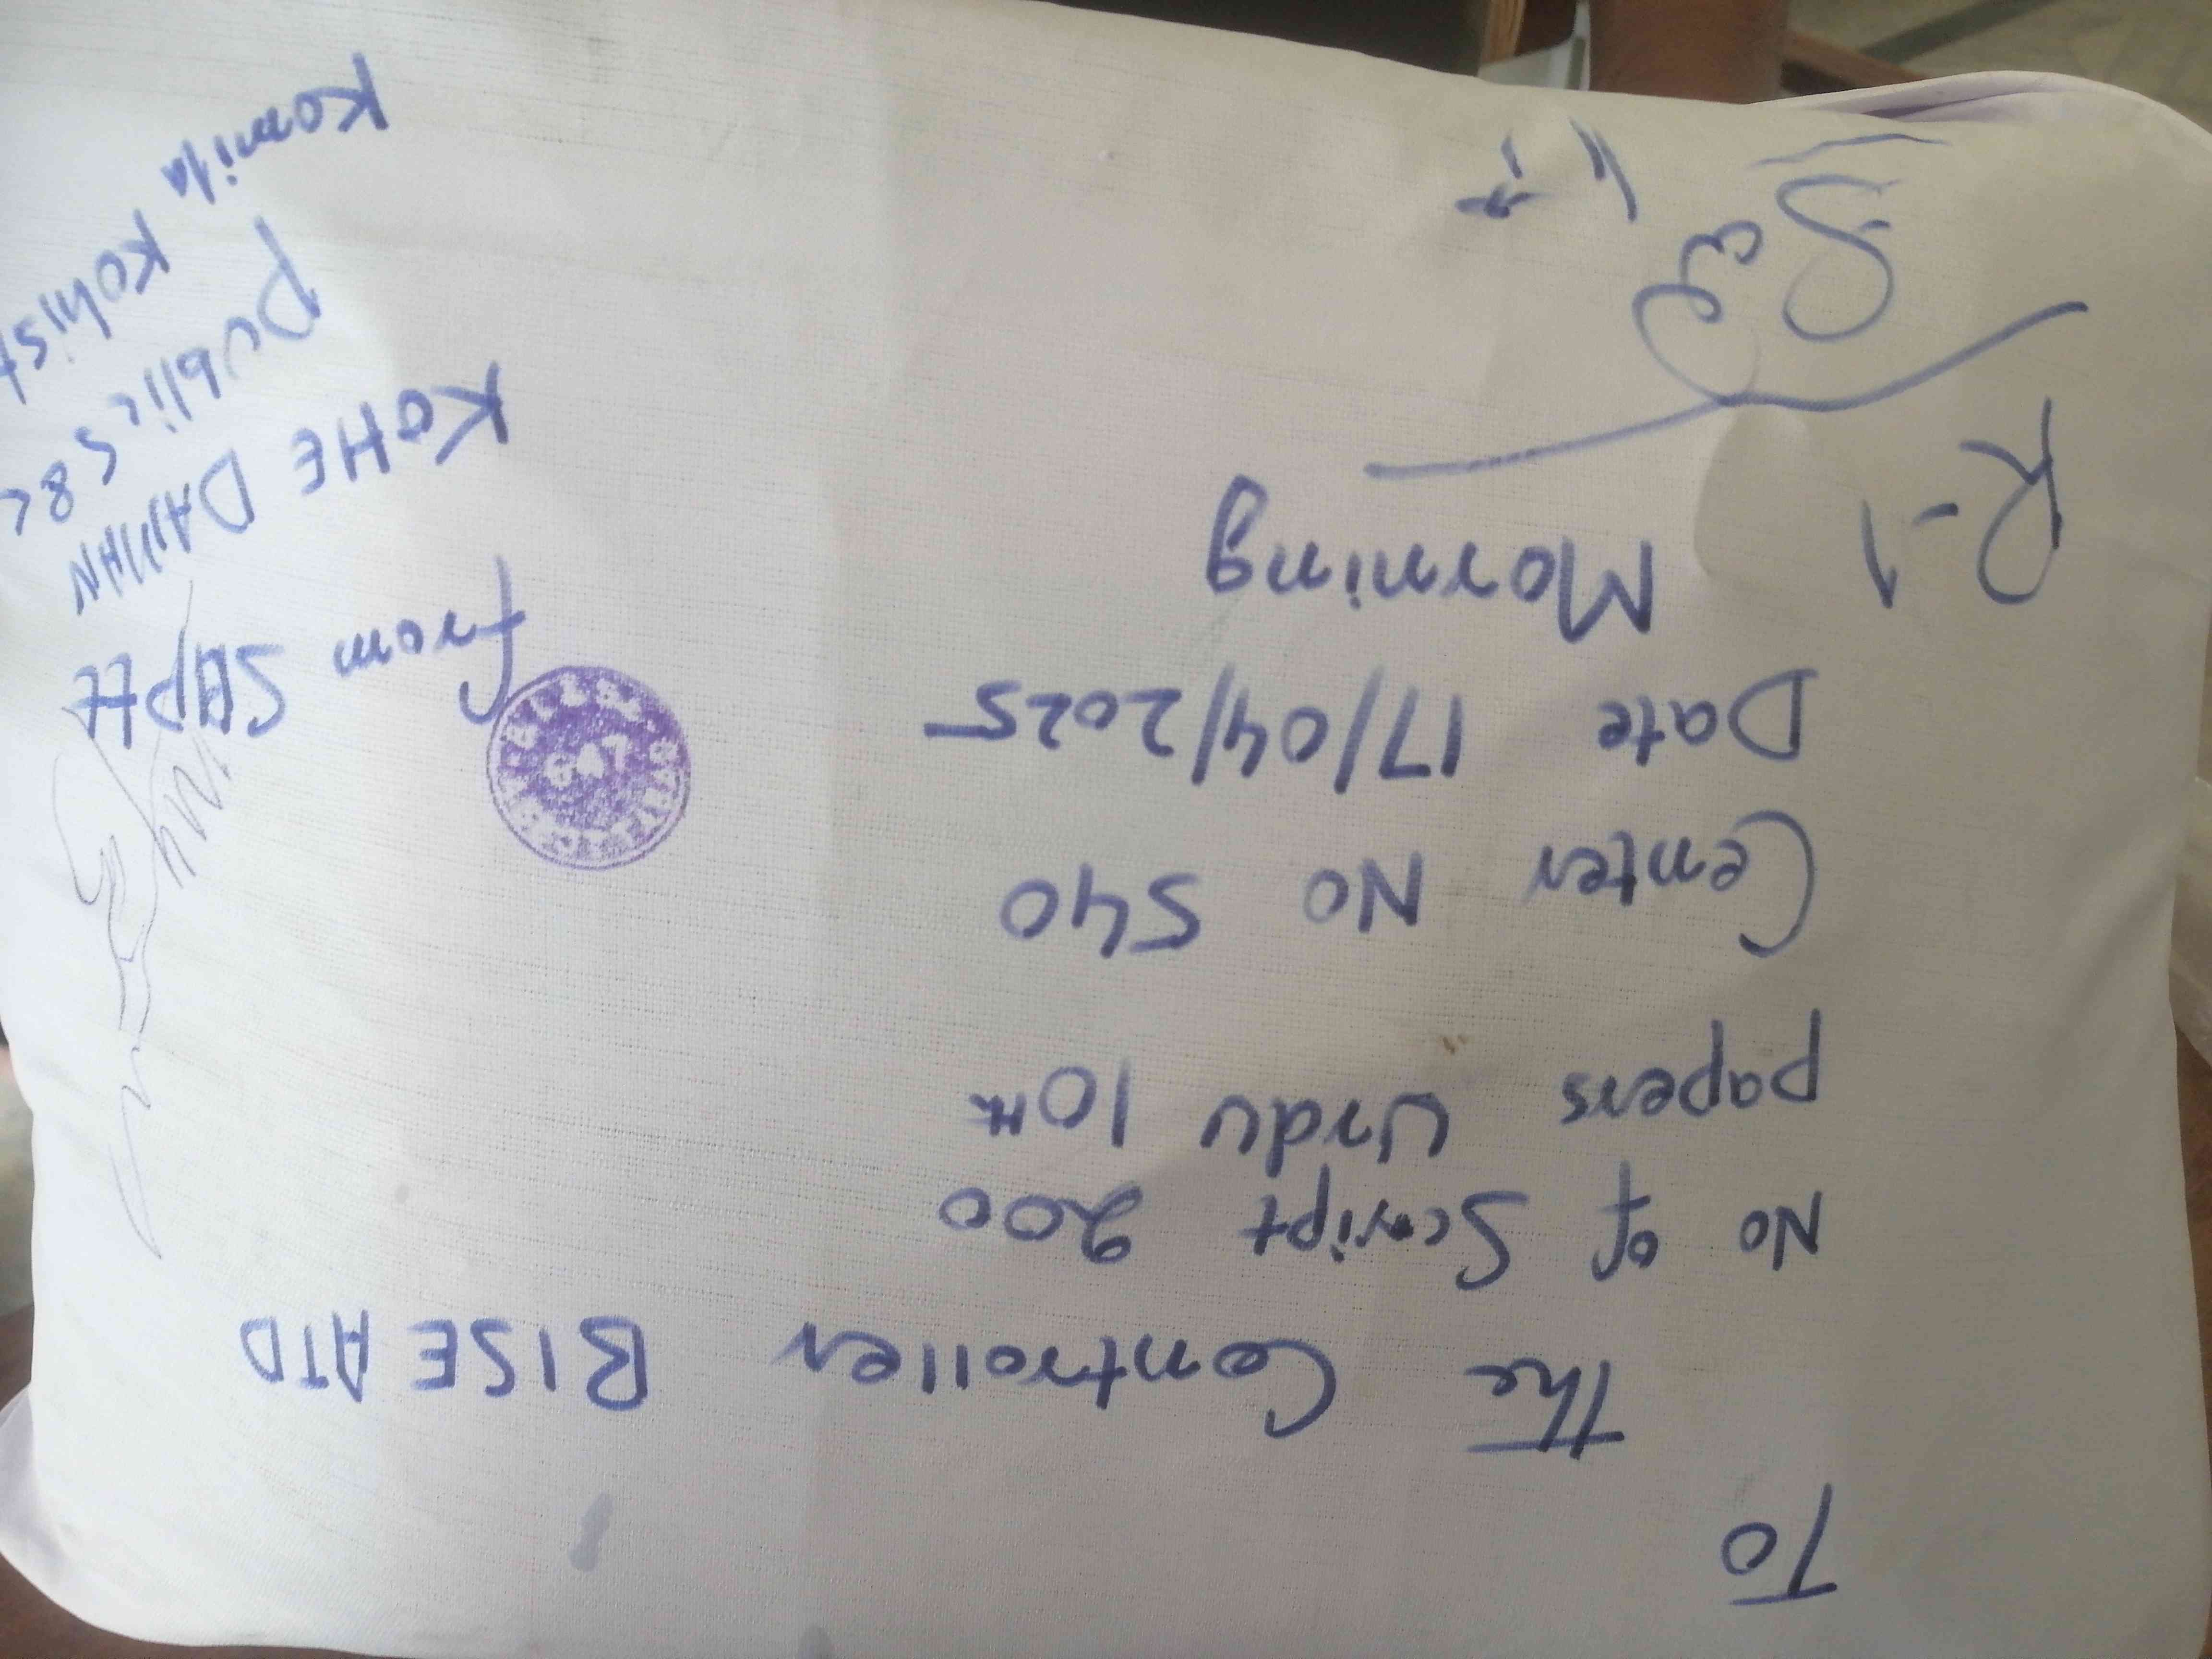 To
The Controller BISE ATD
No of Script 200
papers Urdu 10th
Center No 540
Date 17/04/2025
Morning
R-1
From SUPTT
KOHE DAMAN
Public S &C
Komila Kohist